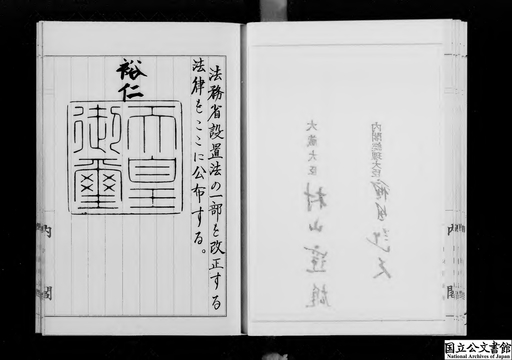 法務省設置法の一部を改正する
法律をここに公布する。
裕仁
天皇
御璽
内閣
内閣総理大臣
福田赳夫
大蔵大臣
村山達雄
内閣
国立公文書館
National Archives of Japan